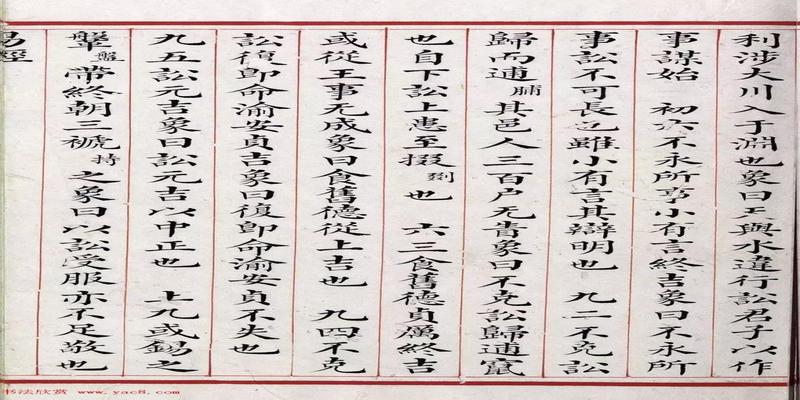 利涉大川入于淵也象曰天與水違行訟君子以作
事謀始 初六不永所事小有言終吉象曰不永所
事訟不可長也雖小有言其辯明也 九二不克訟
歸而逋脯其邑人三百户无眚象曰不克訟歸逋竄
也自下訟上患至掇剟也 六三食舊德貞厲終吉
或從王事无成象曰食舊德從上吉也 九四不克
訟復即命渝安貞吉象曰復即命渝安貞不失也
九五訟元吉象曰訟元吉以中正也 上九或錫之
鞶盤帶終朝三褫持之象曰以訟受服亦不足敬也
易經
书法欣赏 www.yac8.com